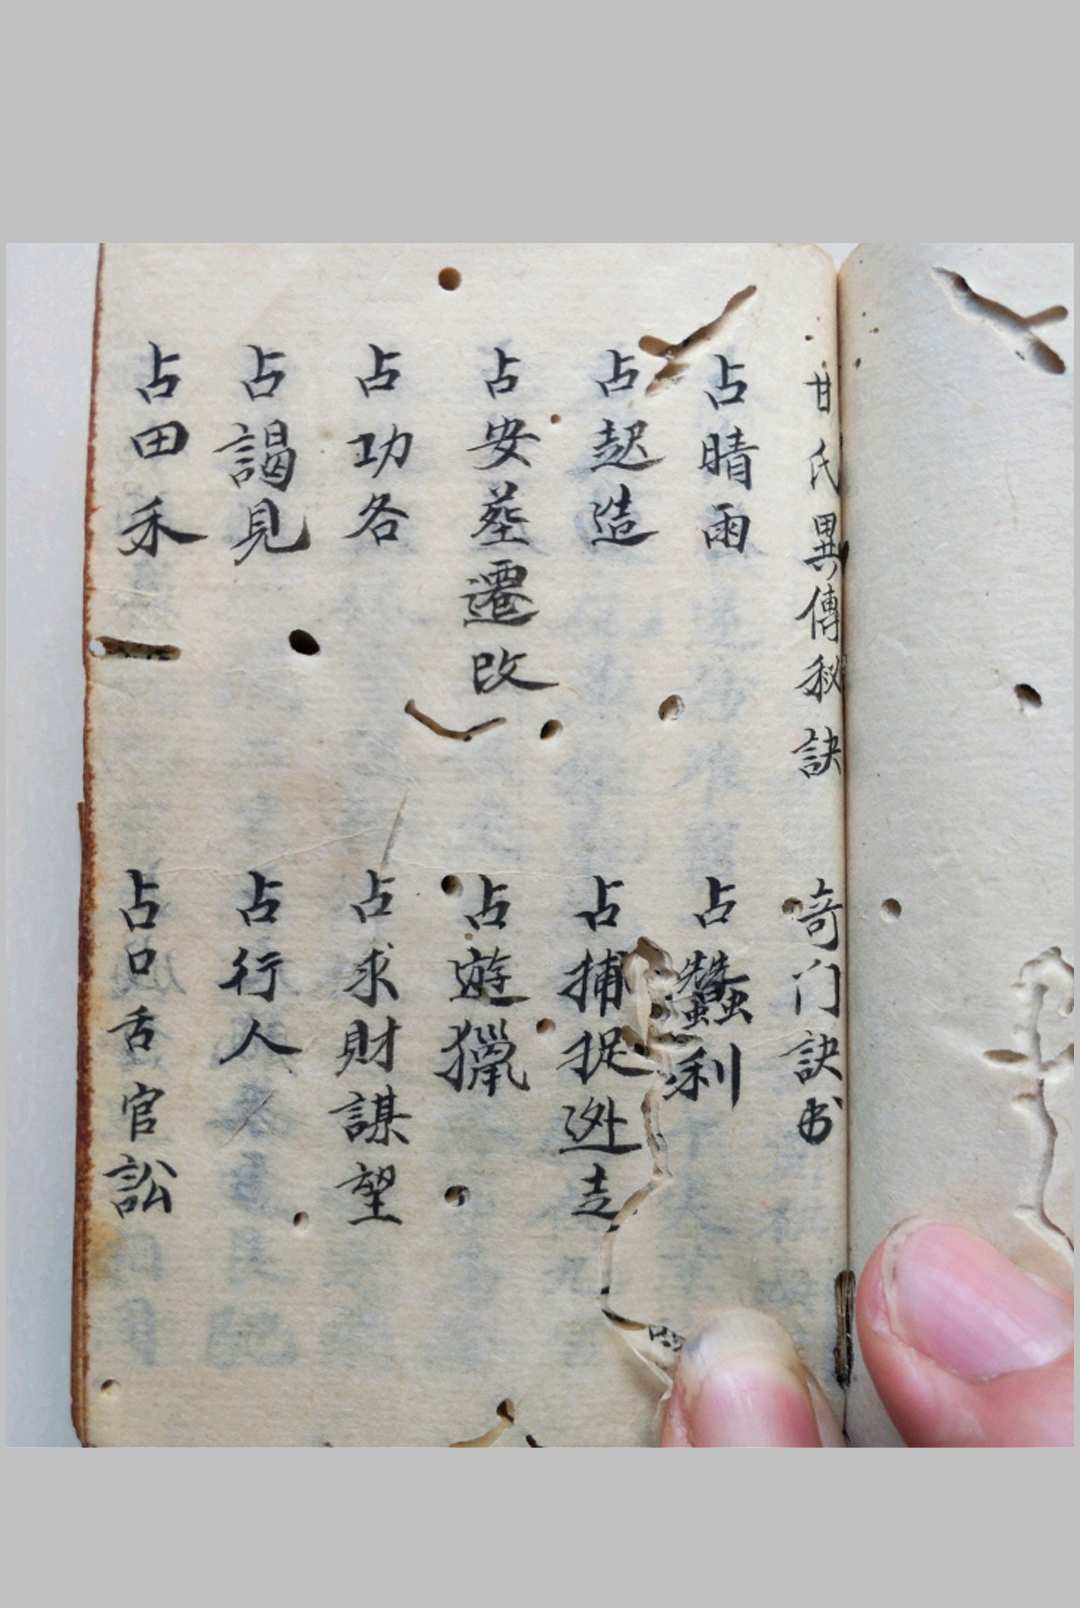 甘氏異傳秘訣 奇门訣书
占晴雨 占蠶利
占起造 占捕捉逃走
占安葬遷改 占遊獵
占功名 占求財謀望
占謁見 占行人
占田禾 占口舌官訟